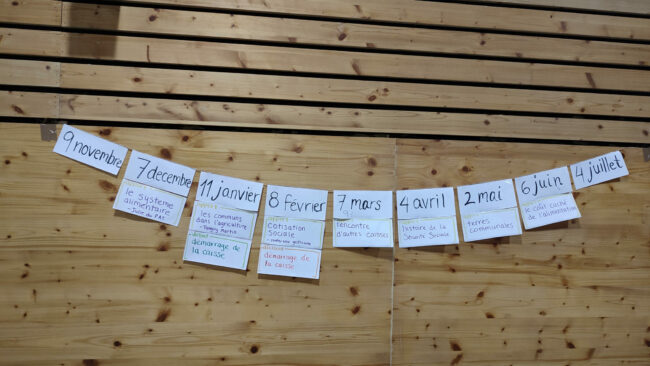 9 novembre
7 decembre
le système
alimentaire
11 janvier
les communs
dans l'agriculture
démarrage de
la caisse
8 février
cotisation
sociale
démarrage de
la caisse
7 mars
rencontre
d'autres caisses
4 avril
histoire de la
Sécurité Sociale
2 mai
terres
communales
6 juin
le coût caché
de l'alimentation
4 juillet